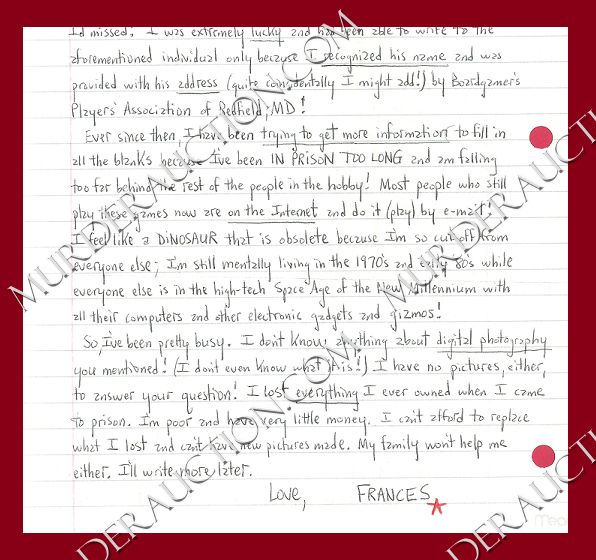 I'd missed. I was extremely lucky and had been able to write to the
aforementioned individual only because I recognized his name and was
provided with his address (quite coincidentally I might add!) by Boardgamer's
Players' Association of Redfield, MD!
Ever since then I have been trying to get more information to fill in
all the blanks because I've been IN PRISON TOO LONG and am falling
too far behind the rest of the people in the hobby! Most people who still
play these games now are on the Internet and do it (play) by e-mail!
I feel like a DINOSAUR that is obsolete because I'm so cut off from
everyone else; I'm still mentally living in the 1970's and early 80's while
everyone else is in the high-tech Space Age of the New Millennium with
all their computers and other electronic gadgets and gizmos!
So, I've been pretty busy. I don't know anything about digital photography
you mentioned! (I don't even know what this!) I have no pictures, either,
to answer your question! I lost everything I ever owned when I came
to prison. I'm poor and have very little money. I can't afford to replace
what I lost and can't have new pictures made. My family won't help me
either. I'll write more later.
Love, FRANCES
MURDERAUCTION.COM